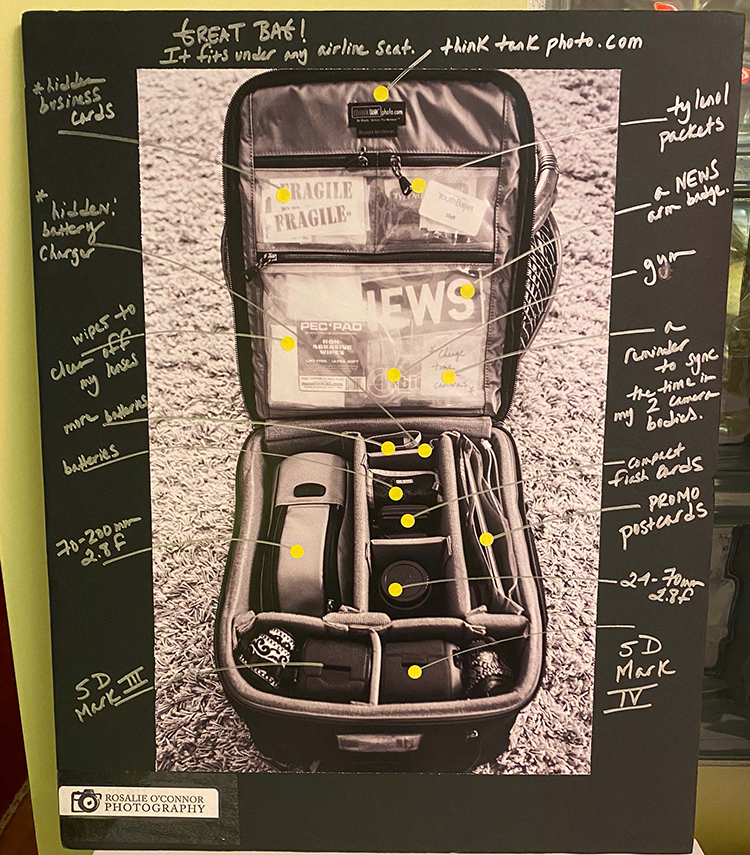 GREAT BAG!
It fits under any airline seat.
think tank photo.com
*hidden
business
cards
tylenol
packets
*
hidden:
battery
charger
a NEWS
arm badge.
gum
wipes to
clean off
my lenses
a
reminder
to sync
the time in
my 2 camera
bodies.
more batteries
batteries
compact
flash cards
PROMO
postcards
70-200mm
2.8f
24-70mm
2.8f
5D
Mark III
5D
Mark
IV
THINK TANK photo.com
FRAGILE
FRAGILE
Staff
NEWS
PEC*PAD
NON-
ABRASIVE
WIPES
Change
time
cameras
ROSALIE O'CONNOR
PHOTOGRAPHY